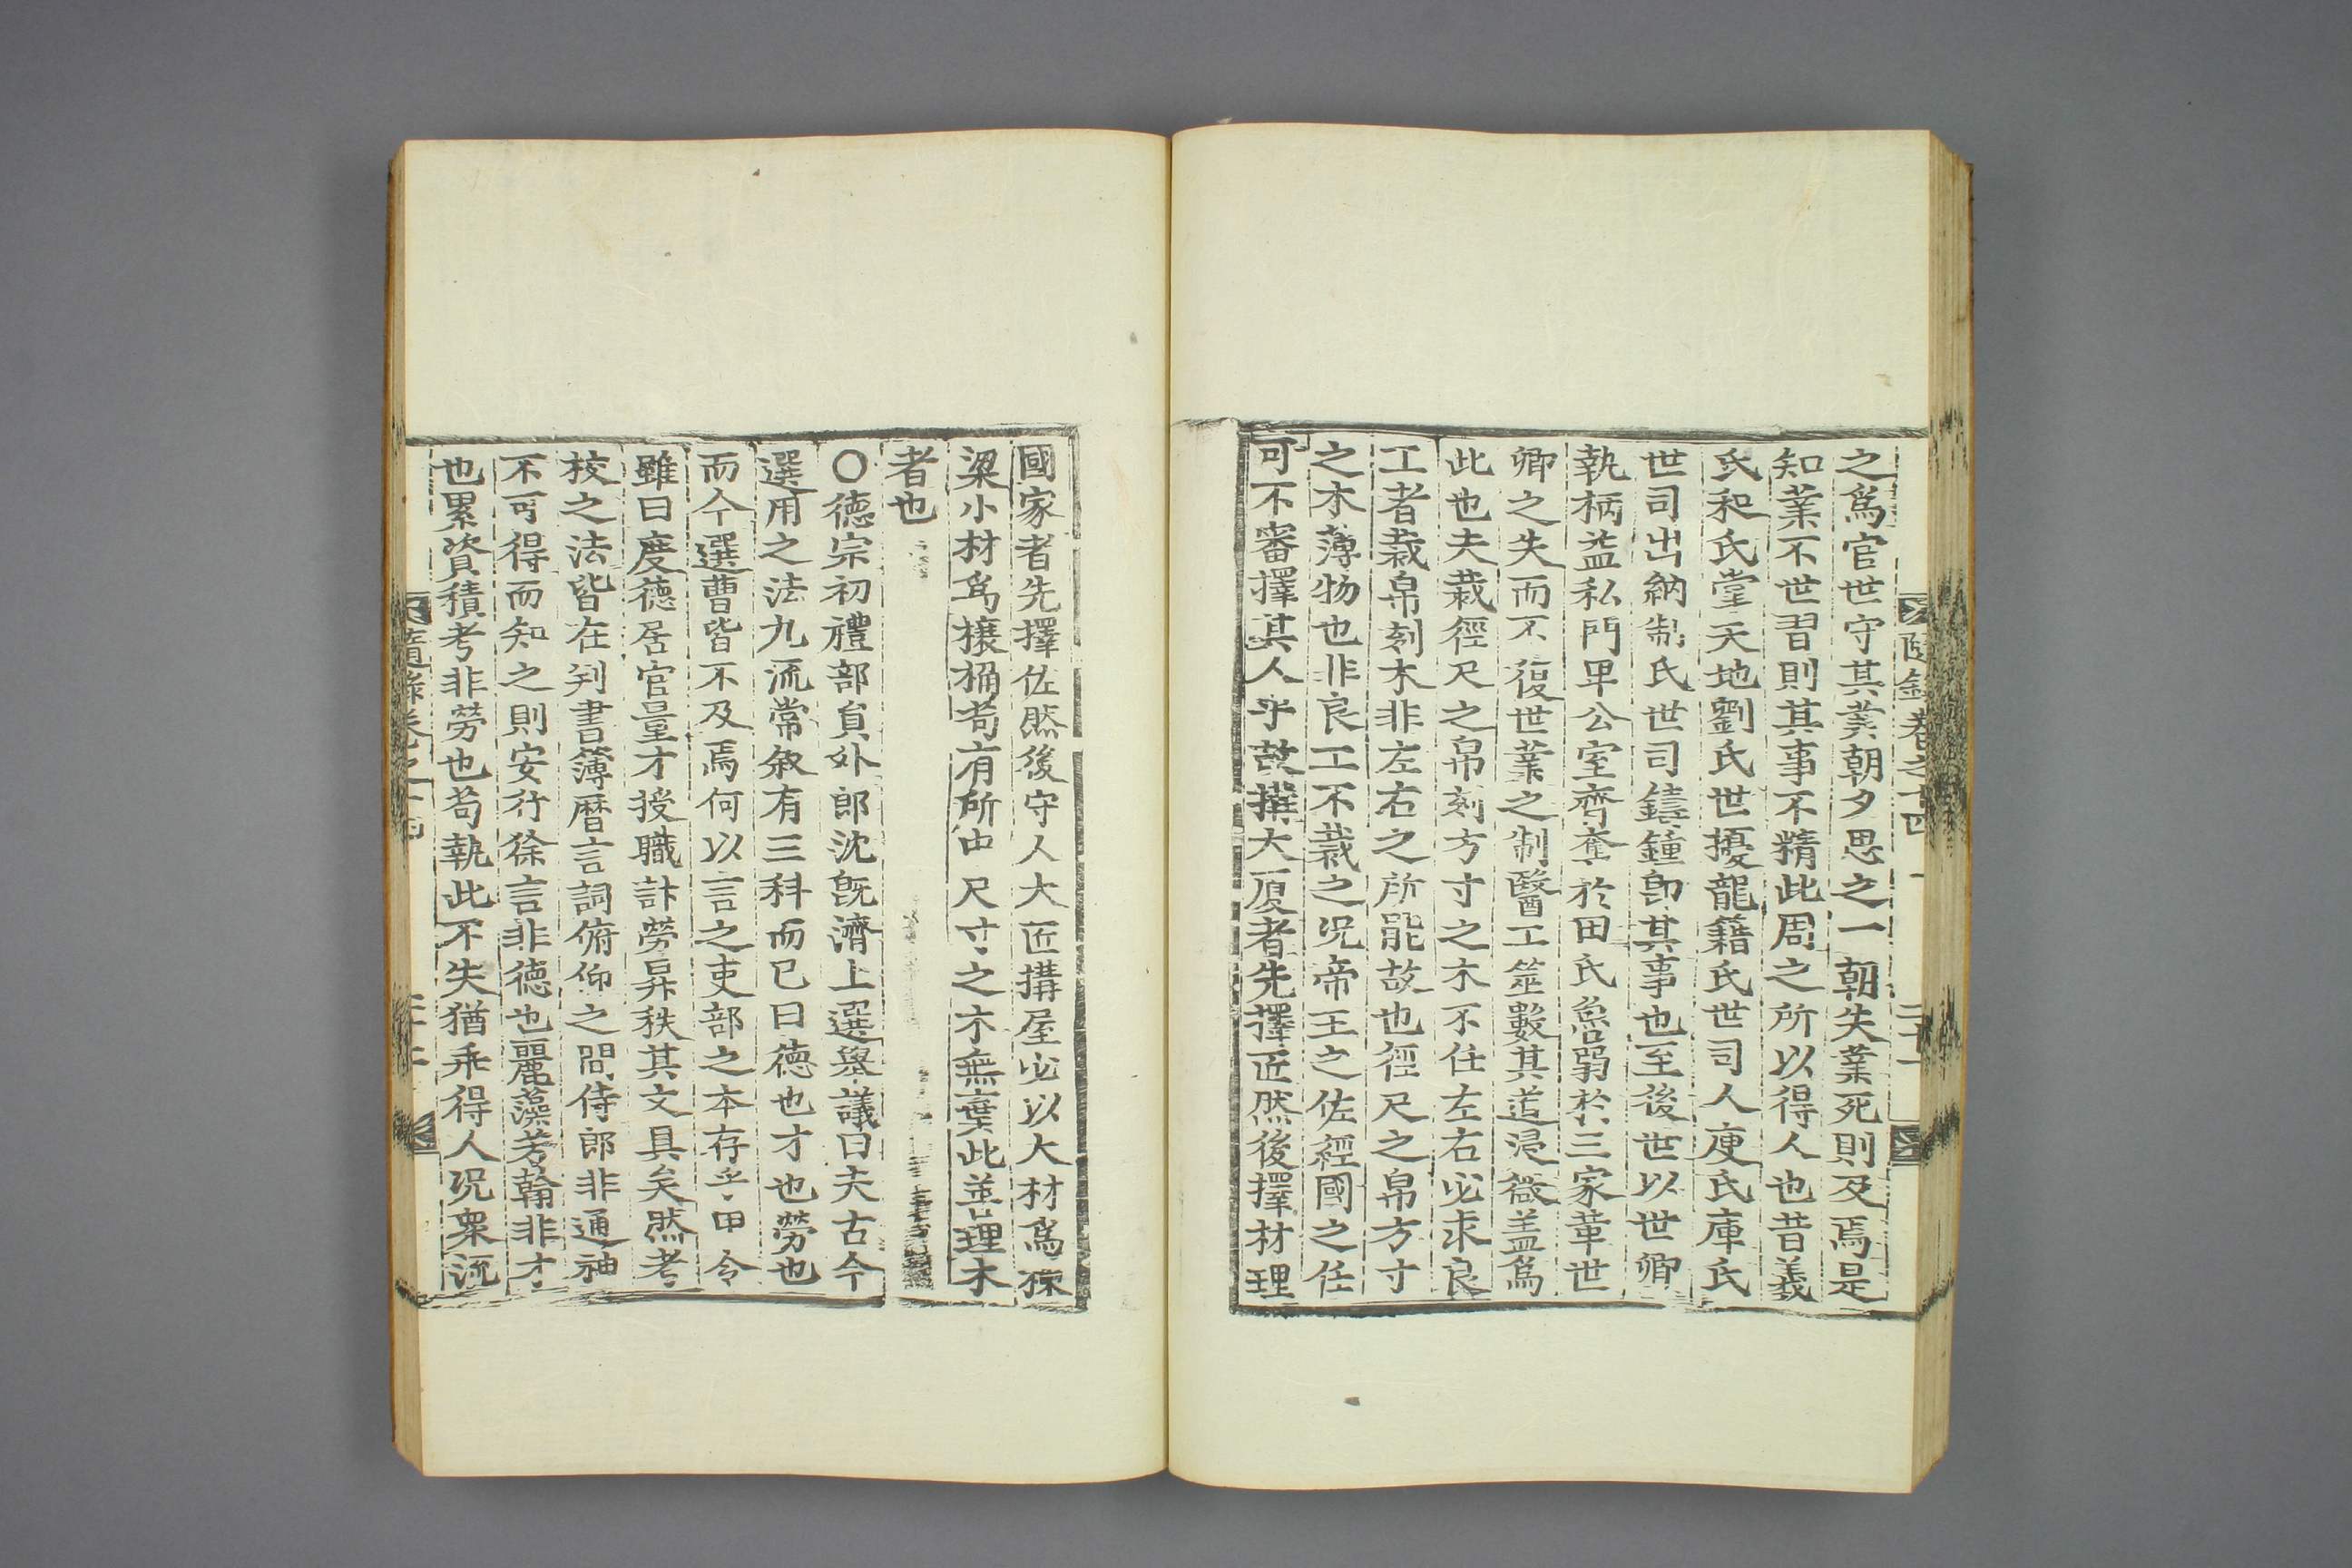 隨錄卷之十四 二十一
之爲官世守其業朝夕思之一朝失業死則及焉是
知業不世習則其事不精此周之所以得人也昔羲
氏和氏掌天地劉氏世擾龍籍氏世司人庾氏庫氏
世司出納制氏世司鑄鍾卽其事也至後世以世卿
執柄益私門卑公室齊奪於田氏魯弱於三家革世
卿之失而不復世業之制醫工筮數其道浸微盖爲
此也夫裁徑尺之帛刻方寸之木不任左右必求良
工者裁帛刻木非左右之所能故也徑尺之帛方寸
之木薄物也非良工不裁之況帝王之佐經國之任
可不審擇其人乎故構大厦者先擇匠然後擇材理
國家者先擇佐然後守人大匠搆屋必以大材爲棟
梁小材爲榱桷苟有所中尺寸之木無棄此善理木
者也
〇德宗初禮部貟外郎沈旣濟上選擧議曰夫古今
選用之法九流常敘有三科而已曰德也才也勞也
而今選曹皆不及焉何以言之吏部之本存乎甲令
雖曰度德居官量才授職計勞昇秩其文具矣然考
校之法皆在判書簿曆言詞俯仰之間侍郎非通神
不可得而知之則安行徐言非德也麗藻芳翰非才
也累資積考非勞也苟執此不失猶乖得人況衆流
隨錄卷之十四 二十二